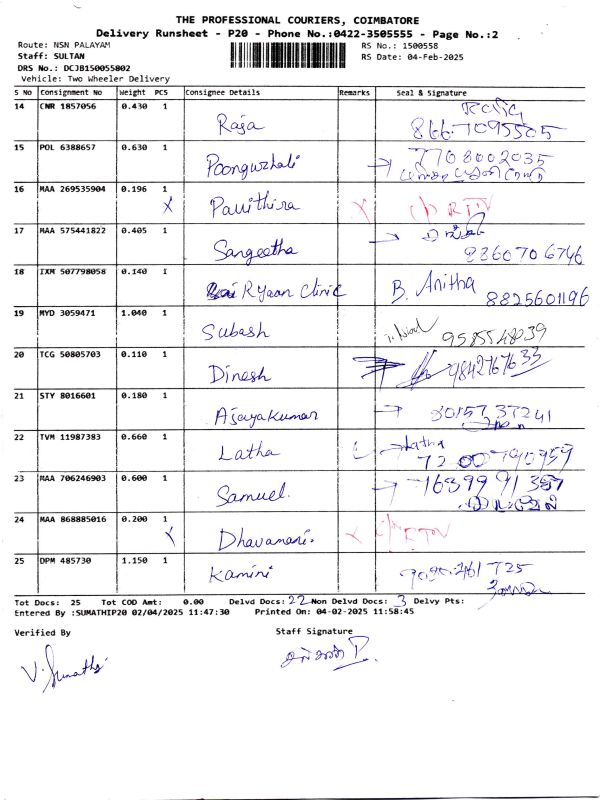 THE PROFESSIONAL COURIERS, COIMBATORE
Delivery Runsheet - P20 - Phone No.:0422-3505555 - Page No.:2
Route: NSN PALAYAM RS No.: 1500558
Staff: SULTAN RS Date: 04-Feb-2025
DRS No.: DCJB150055802
Vehicle: Two Wheeler Delivery
S No Consignment No Weight PCS Consignee Details Remarks Seal & Signature
14 CNR 1857056 0.430 1
Raja 8667095505
15 POL 6388657 0.630 1 7708002035
Poongurhali
16 MAA 269535904 0.196 1
X Pavithra X RTN
17 MAA 575441822 0.405 1
Sangeetha 8860706746
18 IXM 507798058 0.140 1
Ryaan Clinic B. Anitha 8825601196
19 MYD 3059471 1.040 1
Subash 9585548039
20 TCG 50805703 0.110 1
Dinesh 9842767633
21 STY 8016601 0.180 1
Ajayakumar 8015737241
22 TVM 11987383 0.660 1 Latha
Latha 7200790959
23 MAA 706246903 0.600 1
Samuel
24 MAA 868885016 0.200 1
X Dhavamani. X RTN
25 DPM 485730 1.150 1
Kamini
Tot Docs: 25 Tot COD Amt: 0.00 Delvd Docs: 22 Non Delvd Docs: 3 Delvy Pts:
Entered By :SUMATHIP20 02/04/2025 11:47:30 Printed On: 04-02-2025 11:58:45
Verified By Staff Signature
V. Sumathi